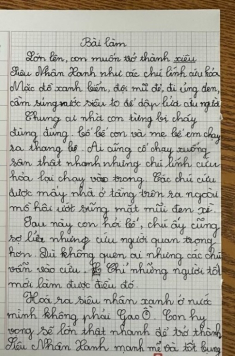 Bài làm
Lớn lên, con muốn trở thành siêu
Siêu Nhân Xanh như các chú lính cứu hỏa
Mặc đồ xanh biển, đội mũ đỏ, đi ủng đen,
cầm súng nước siêu to để dập lửa cứu người
Chung cư nhà con từng bị cháy
đùng đùng. Bố bế con và mẹ bế em chạy
ra thang bộ. Ai cũng cố chạy xuống
sân thật nhanh nhưng chú lính cứu
hỏa lại chạy vào trong. Các chú cứu
được mấy nhà ở tầng trên ra ngoài
mồ hôi ướt sũng mặt mũi đen xì.
Sau này con hỏi bố, chú ấy cũng
sợ lửa nhưng cứu người quan trọng
hơn. Dù không quen ai nhưng các chú
vẫn vào cứu. Chỉ những người tốt
mới làm được điều đó.
Hoá ra siêu nhân xanh ở nước
mình không phải Gao. Con hy
vọng sẽ lớn thật nhanh để trở thành
Siêu Nhân Xanh mạnh mẽ và tốt bụng